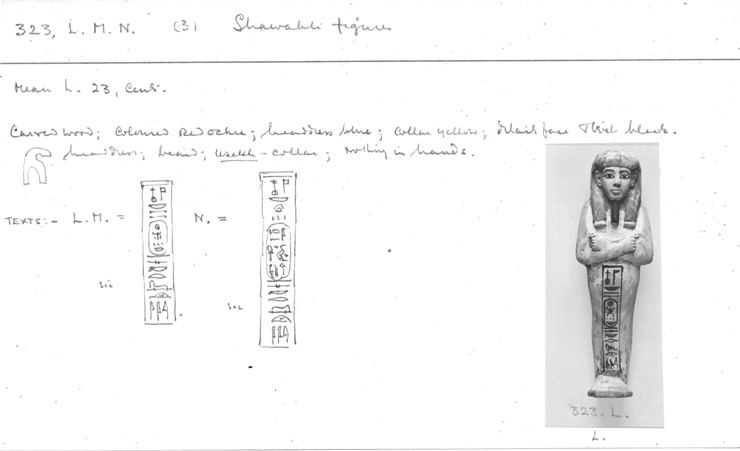 323, L. M. N. (3) Shawabti figures
Mean h. 23, cents.
Carved wood; coloured red ochre; headdress blue; collar yellow; details face & text black.
headdress; beard; usekh-collar; nothing in hands.
TEXTS:- L.M. = N. =
sic
sic
323. L.
L.